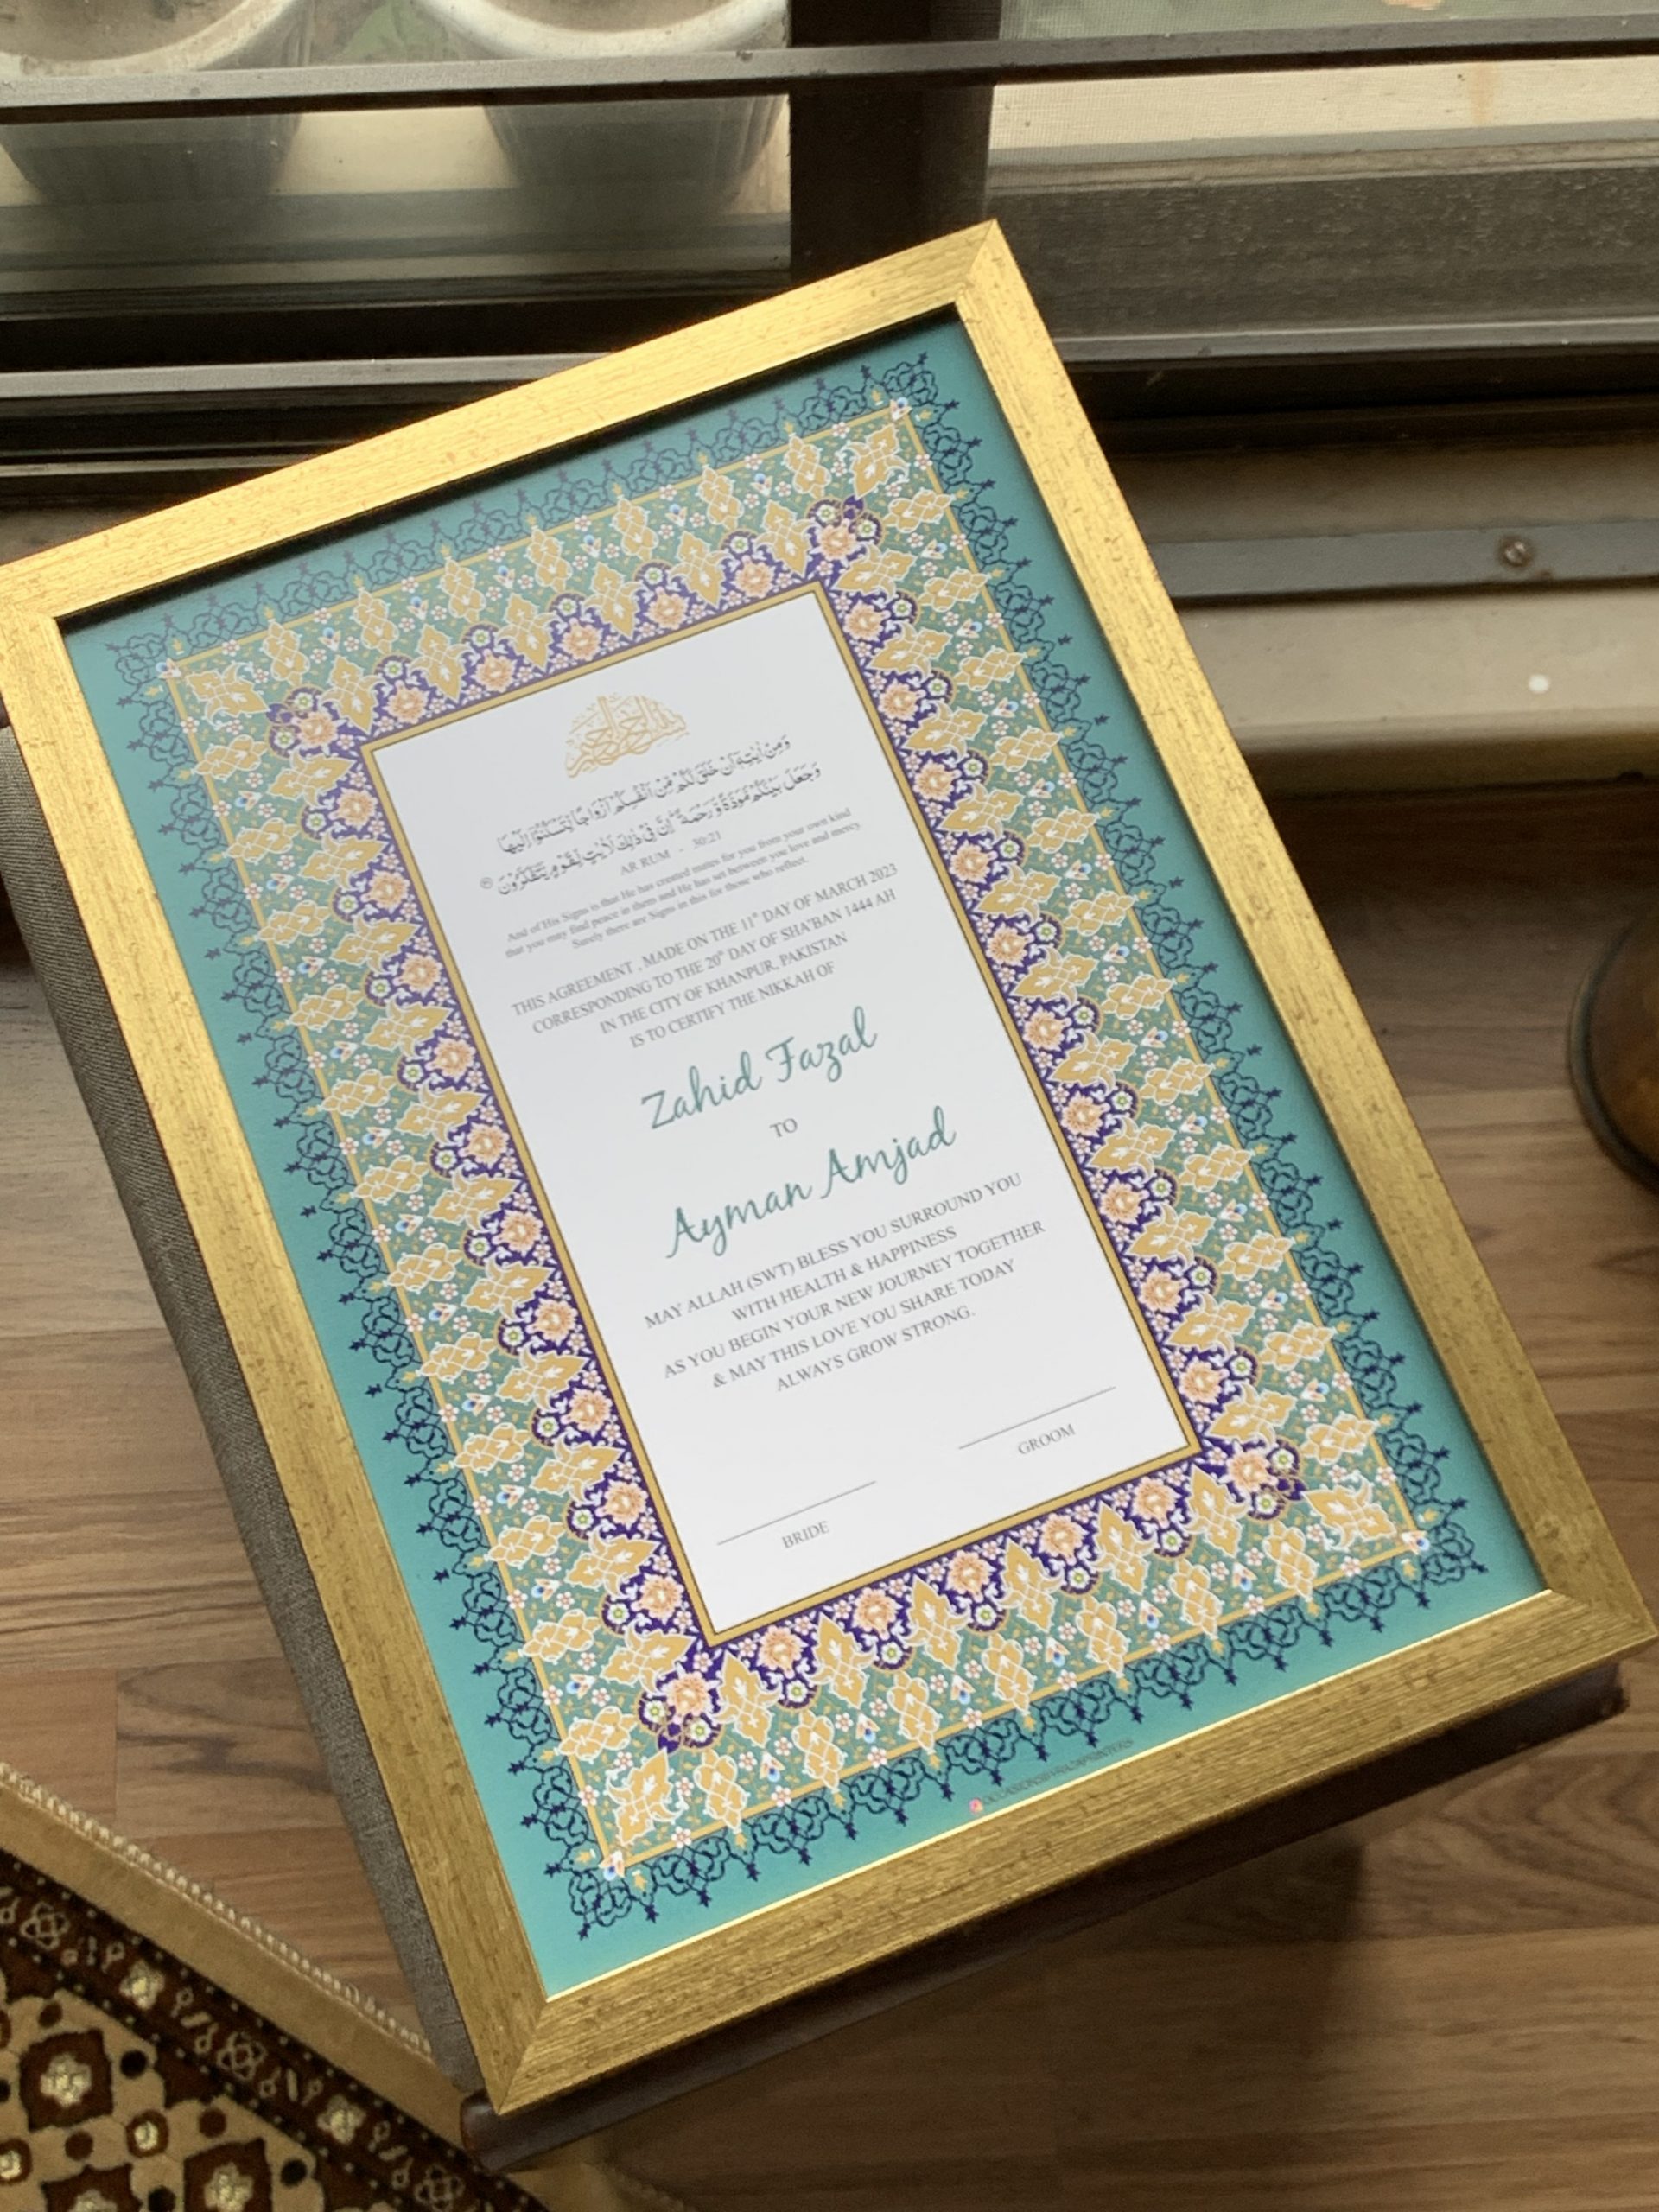 بسم الله الرحمن الرحيم
وَمِنْ اٰيٰتِهٖٓ اَنْ خَلَقَ لَكُمْ مِّنْ اَنْفُسِكُمْ اَزْوَاجًا لِّتَسْكُنُوْٓا اِلَيْهَا
وَجَعَلَ بَيْنَكُمْ مَّوَدَّةً وَّرَحْمَةً ۭ اِنَّ فِيْ ذٰلِكَ لَاٰيٰتٍ لِّقَوْمٍ يَّتَفَكَّرُوْنَ
AR RUM - 30:21
And of His Signs is that He has created mates for you from your own kind
that you may find peace in them and He has set between you love and mercy.
Surely there are Signs in this for those who reflect.
THIS AGREEMENT , MADE ON THE 11th DAY OF MARCH 2023
CORRESPONDING TO THE 20th DAY OF SHA'BAN 1444 AH
IN THE CITY OF KHANPUR, PAKISTAN
IS TO CERTIFY THE NIKKAH OF
Zahid Fazal
TO
Ayman Amjad
MAY ALLAH (SWT) BLESS YOU SURROUND YOU
WITH HEALTH & HAPPINESS
AS YOU BEGIN YOUR NEW JOURNEY TOGETHER
& MAY THIS LOVE YOU SHARE TODAY
ALWAYS GROW STRONG.
GROOM
BRIDE